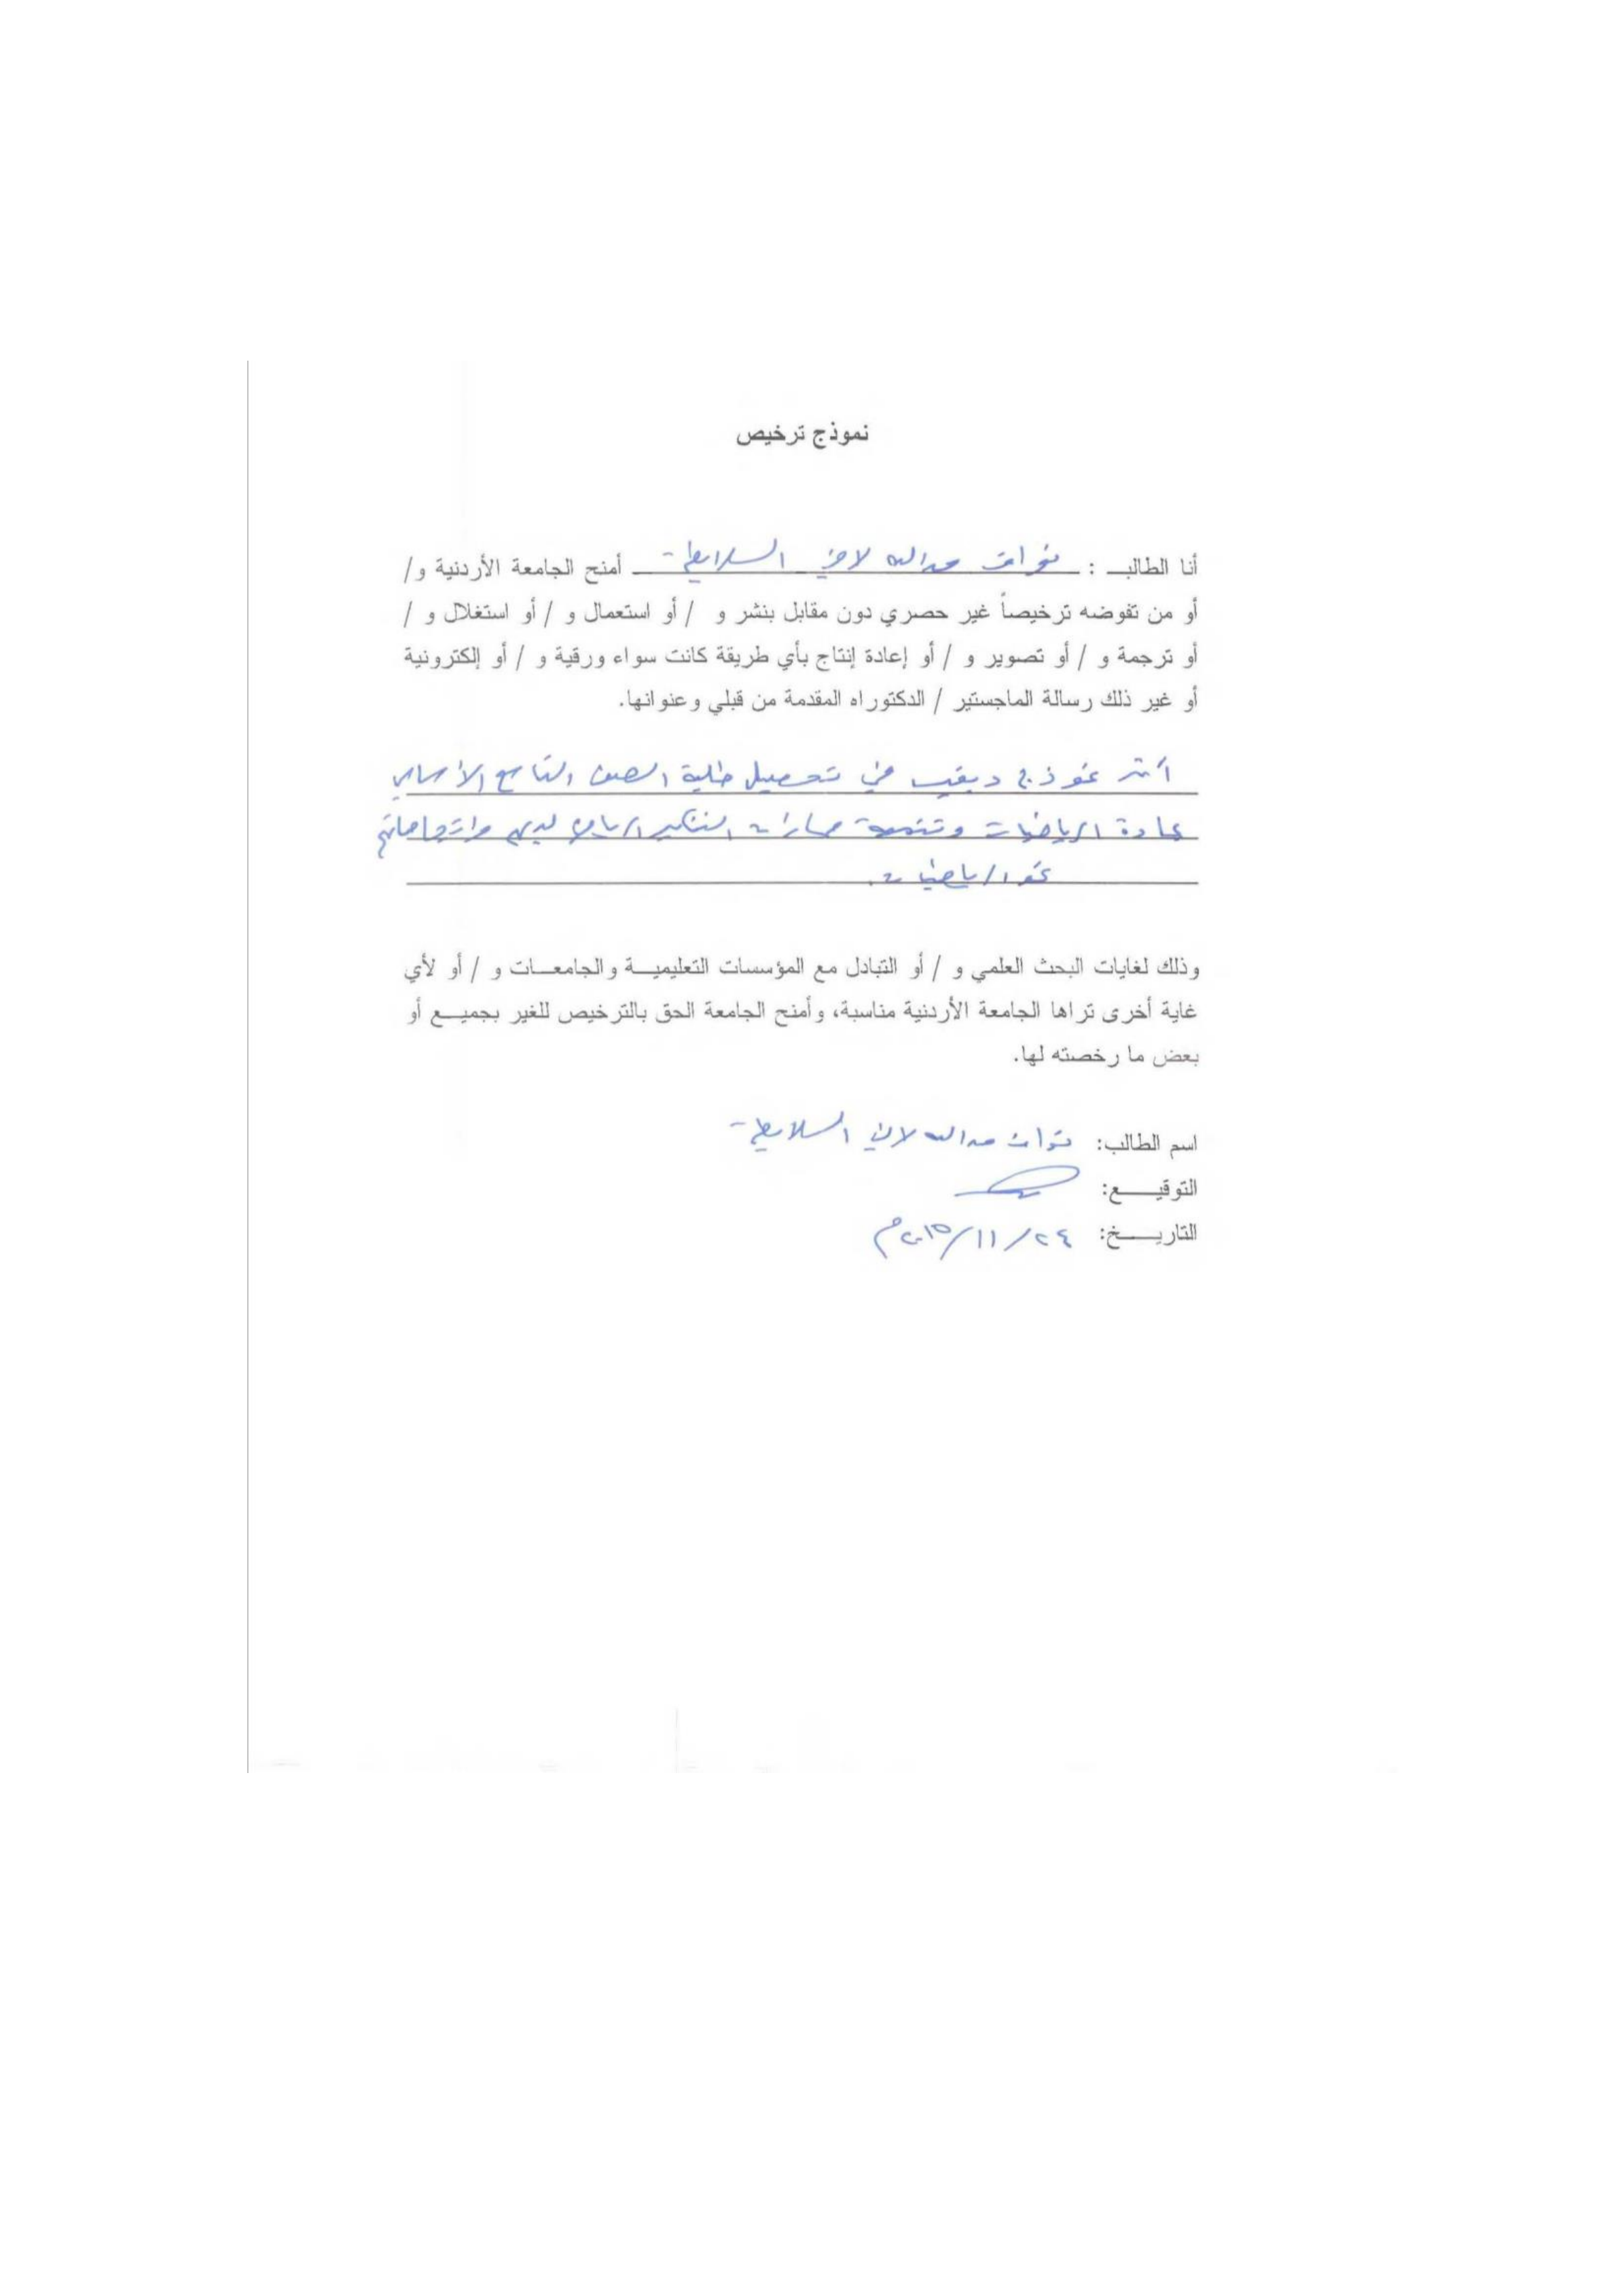 نموذج ترخيص
أنا الطالب : عبدالله لافي السلايطة أمنح الجامعة الأردنية و/
أو من تفوضه ترخيصاً غير حصري دون مقابل بنشر و / أو استعمال و / أو استغلال و /
أو ترجمة و / أو تصوير و / أو إعادة إنتاج بأي طريقة كانت سواء ورقية و / أو إلكترونية
أو غير ذلك رسالة الماجستير / الدكتوراه المقدمة من قبلي وعنوانها.
أثر نموذج ديفيز في تحصيل طلبة الصف التاسع الأساسي
بمادة الرياضيات وتنمية مهارات التفكير الرياضي لديهم واتجاهاتهم
نحو الرياضيات.
وذلك لغايات البحث العلمي و / أو التبادل مع المؤسسات التعليمية والجامعات و / أو لأي
غاية أخرى تراها الجامعة الأردنية مناسبة، وأمنح الجامعة الحق بالترخيص للغير بجميع أو
بعض ما رخصته لها.
اسم الطالب: عبدالله لافي السلايطة
التوقيع:
التاريخ: ٢٤/١١/٢٠١٥م